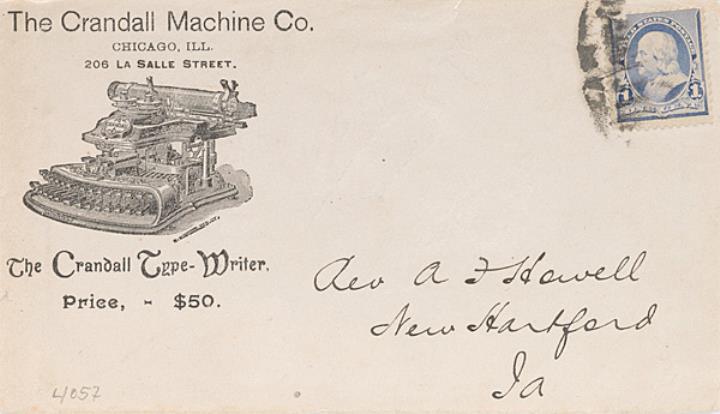 The Crandall Machine Co.
CHICAGO, ILL.
206 LA SALLE STREET.
The Crandall Type-Writer.
Price, - $50.
UNITED STATES POSTAGE
1 1
ONE CENT
Rev A F Howell
New Hartford
Ia
4057